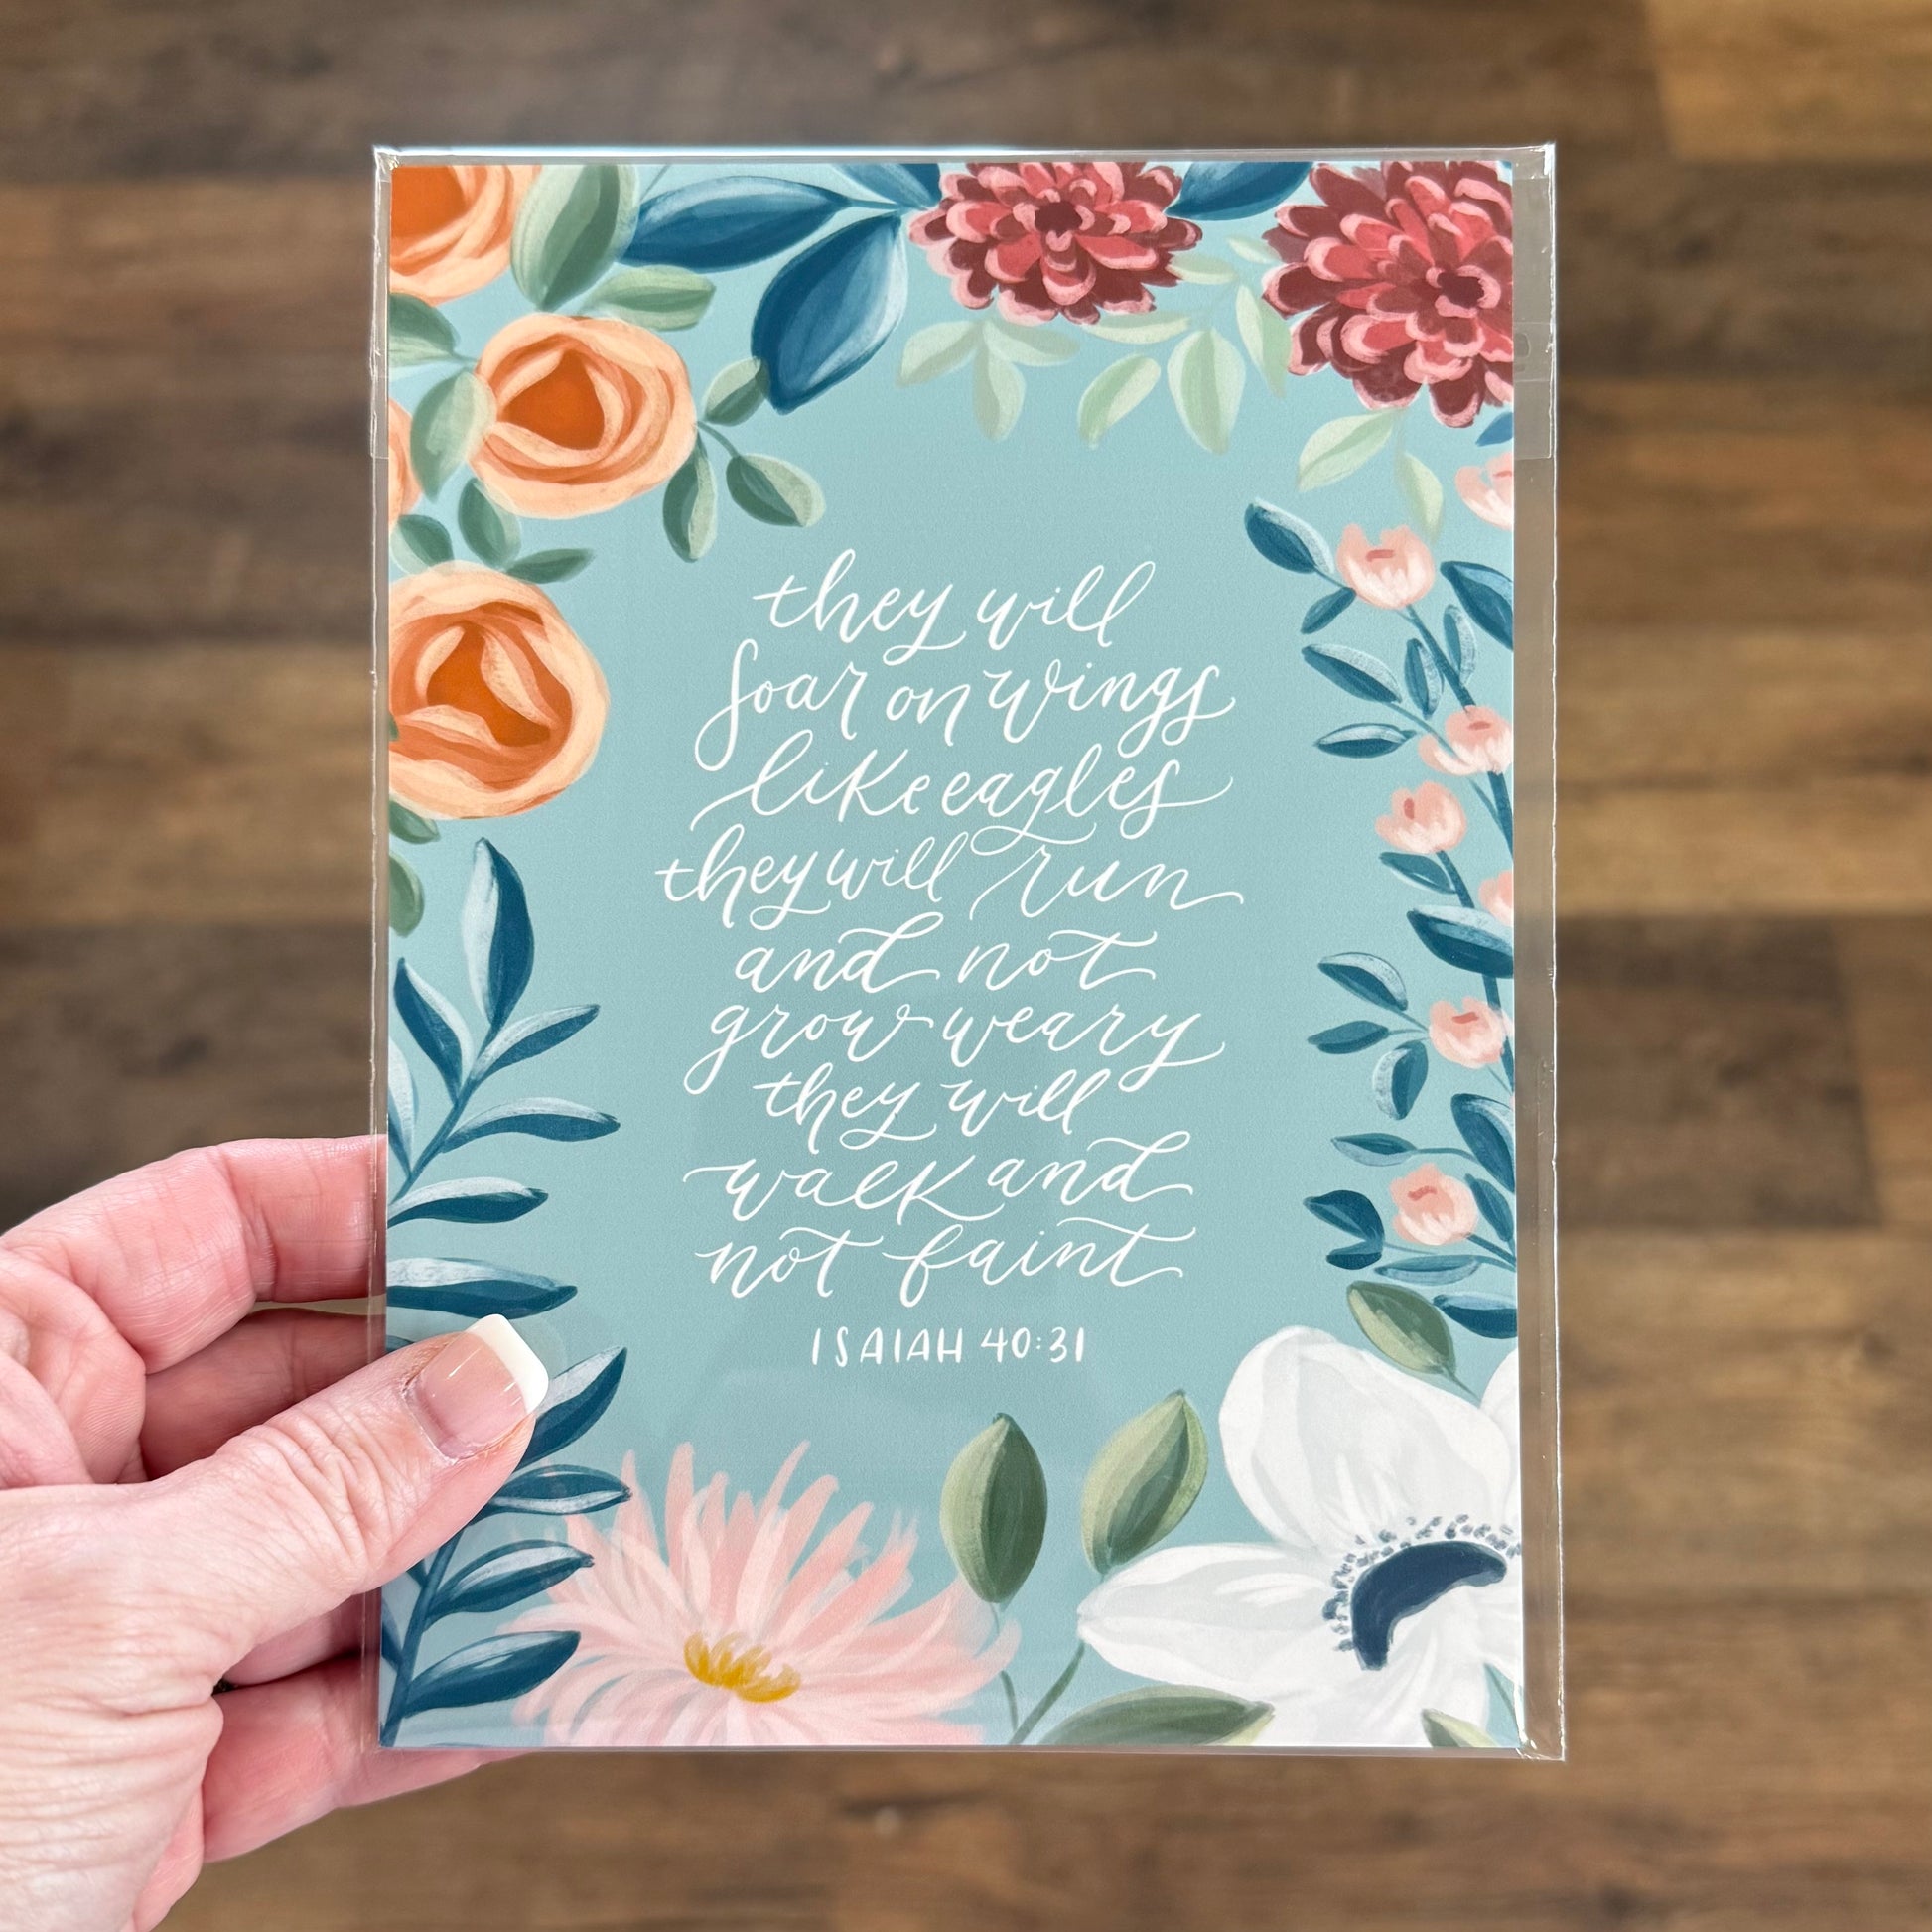 they will
soar on wings
like eagles
they will run
and not
grow weary
they will
walk and
not faint
ISAIAH 40:31